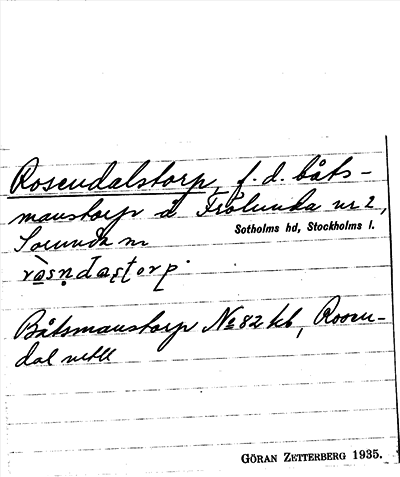 Rosendalstorp, f.d. båts-
manstorp å Frölunda nr 2,
Sorunda sn Sotholms hd, Stockholms l.
Båtsmanstorp No 82 kb, Rosen-
dal
GÖRAN ZETTERBERG 1935.